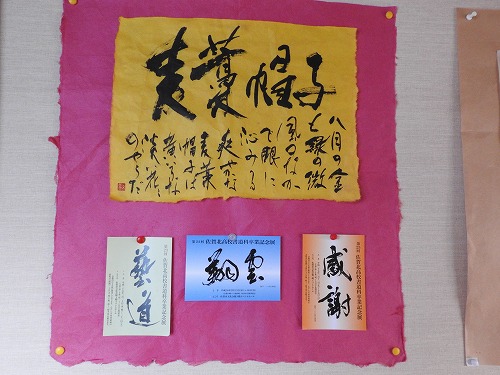 麦藁帽子
八月の金
と緑の微
風のなか
で眼に
沁みる
爽やかな
麦藁
帽子は
黄いろな
淡い花々
のやうだ
佐賀北高校書道科卒業記念展
藝道
佐賀北高校書道科卒業記念展
翔雲
佐賀北高校書道科卒業記念展
感謝